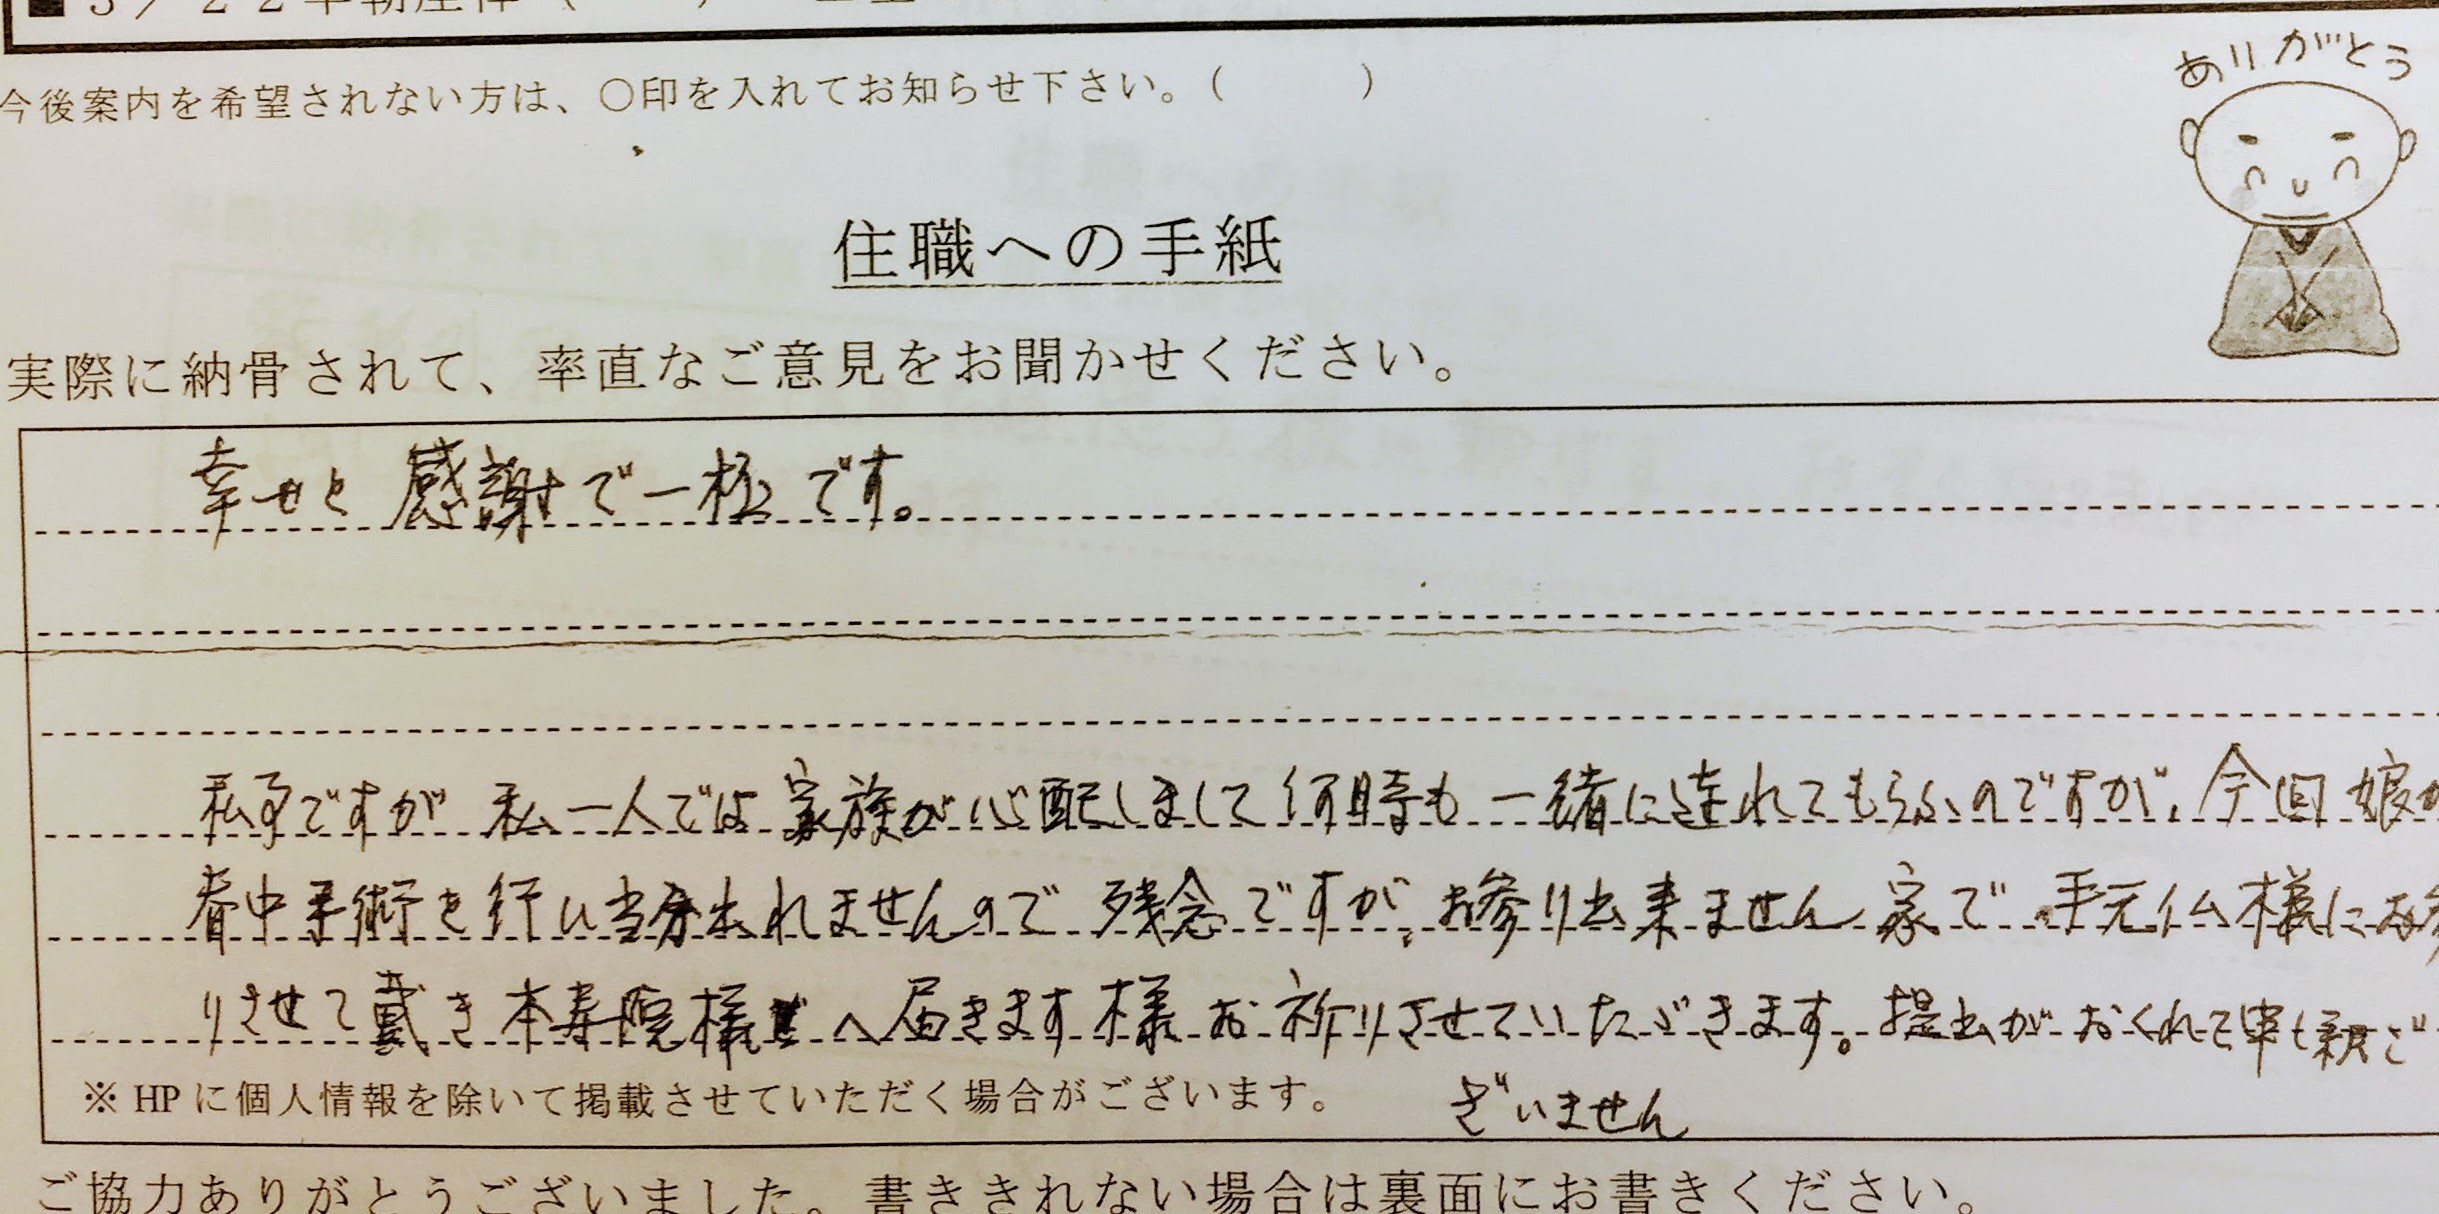 ありがとう
今後案内を希望されない方は、〇印を入れてお知らせ下さい。(　　　)
住職への手紙
実際に納骨されて、率直なご意見をお聞かせください。
幸せと感謝で一杯です。
私事ですが私一人では家族が心配しまして何時も一緒に連れてもらふのですが、今回娘が
背中手術を行い当分出れませんので残念ですが、お参り出来ません家で手元仏様にお参
りさせて戴き本寿院様へ届きます様お祈りさせていただきます。提出がおくれて申し訳ご
ざいません
※HPに個人情報を除いて掲載させていただく場合がございます。
ご協力ありがとうございました。書ききれない場合は裏面にお書きください。